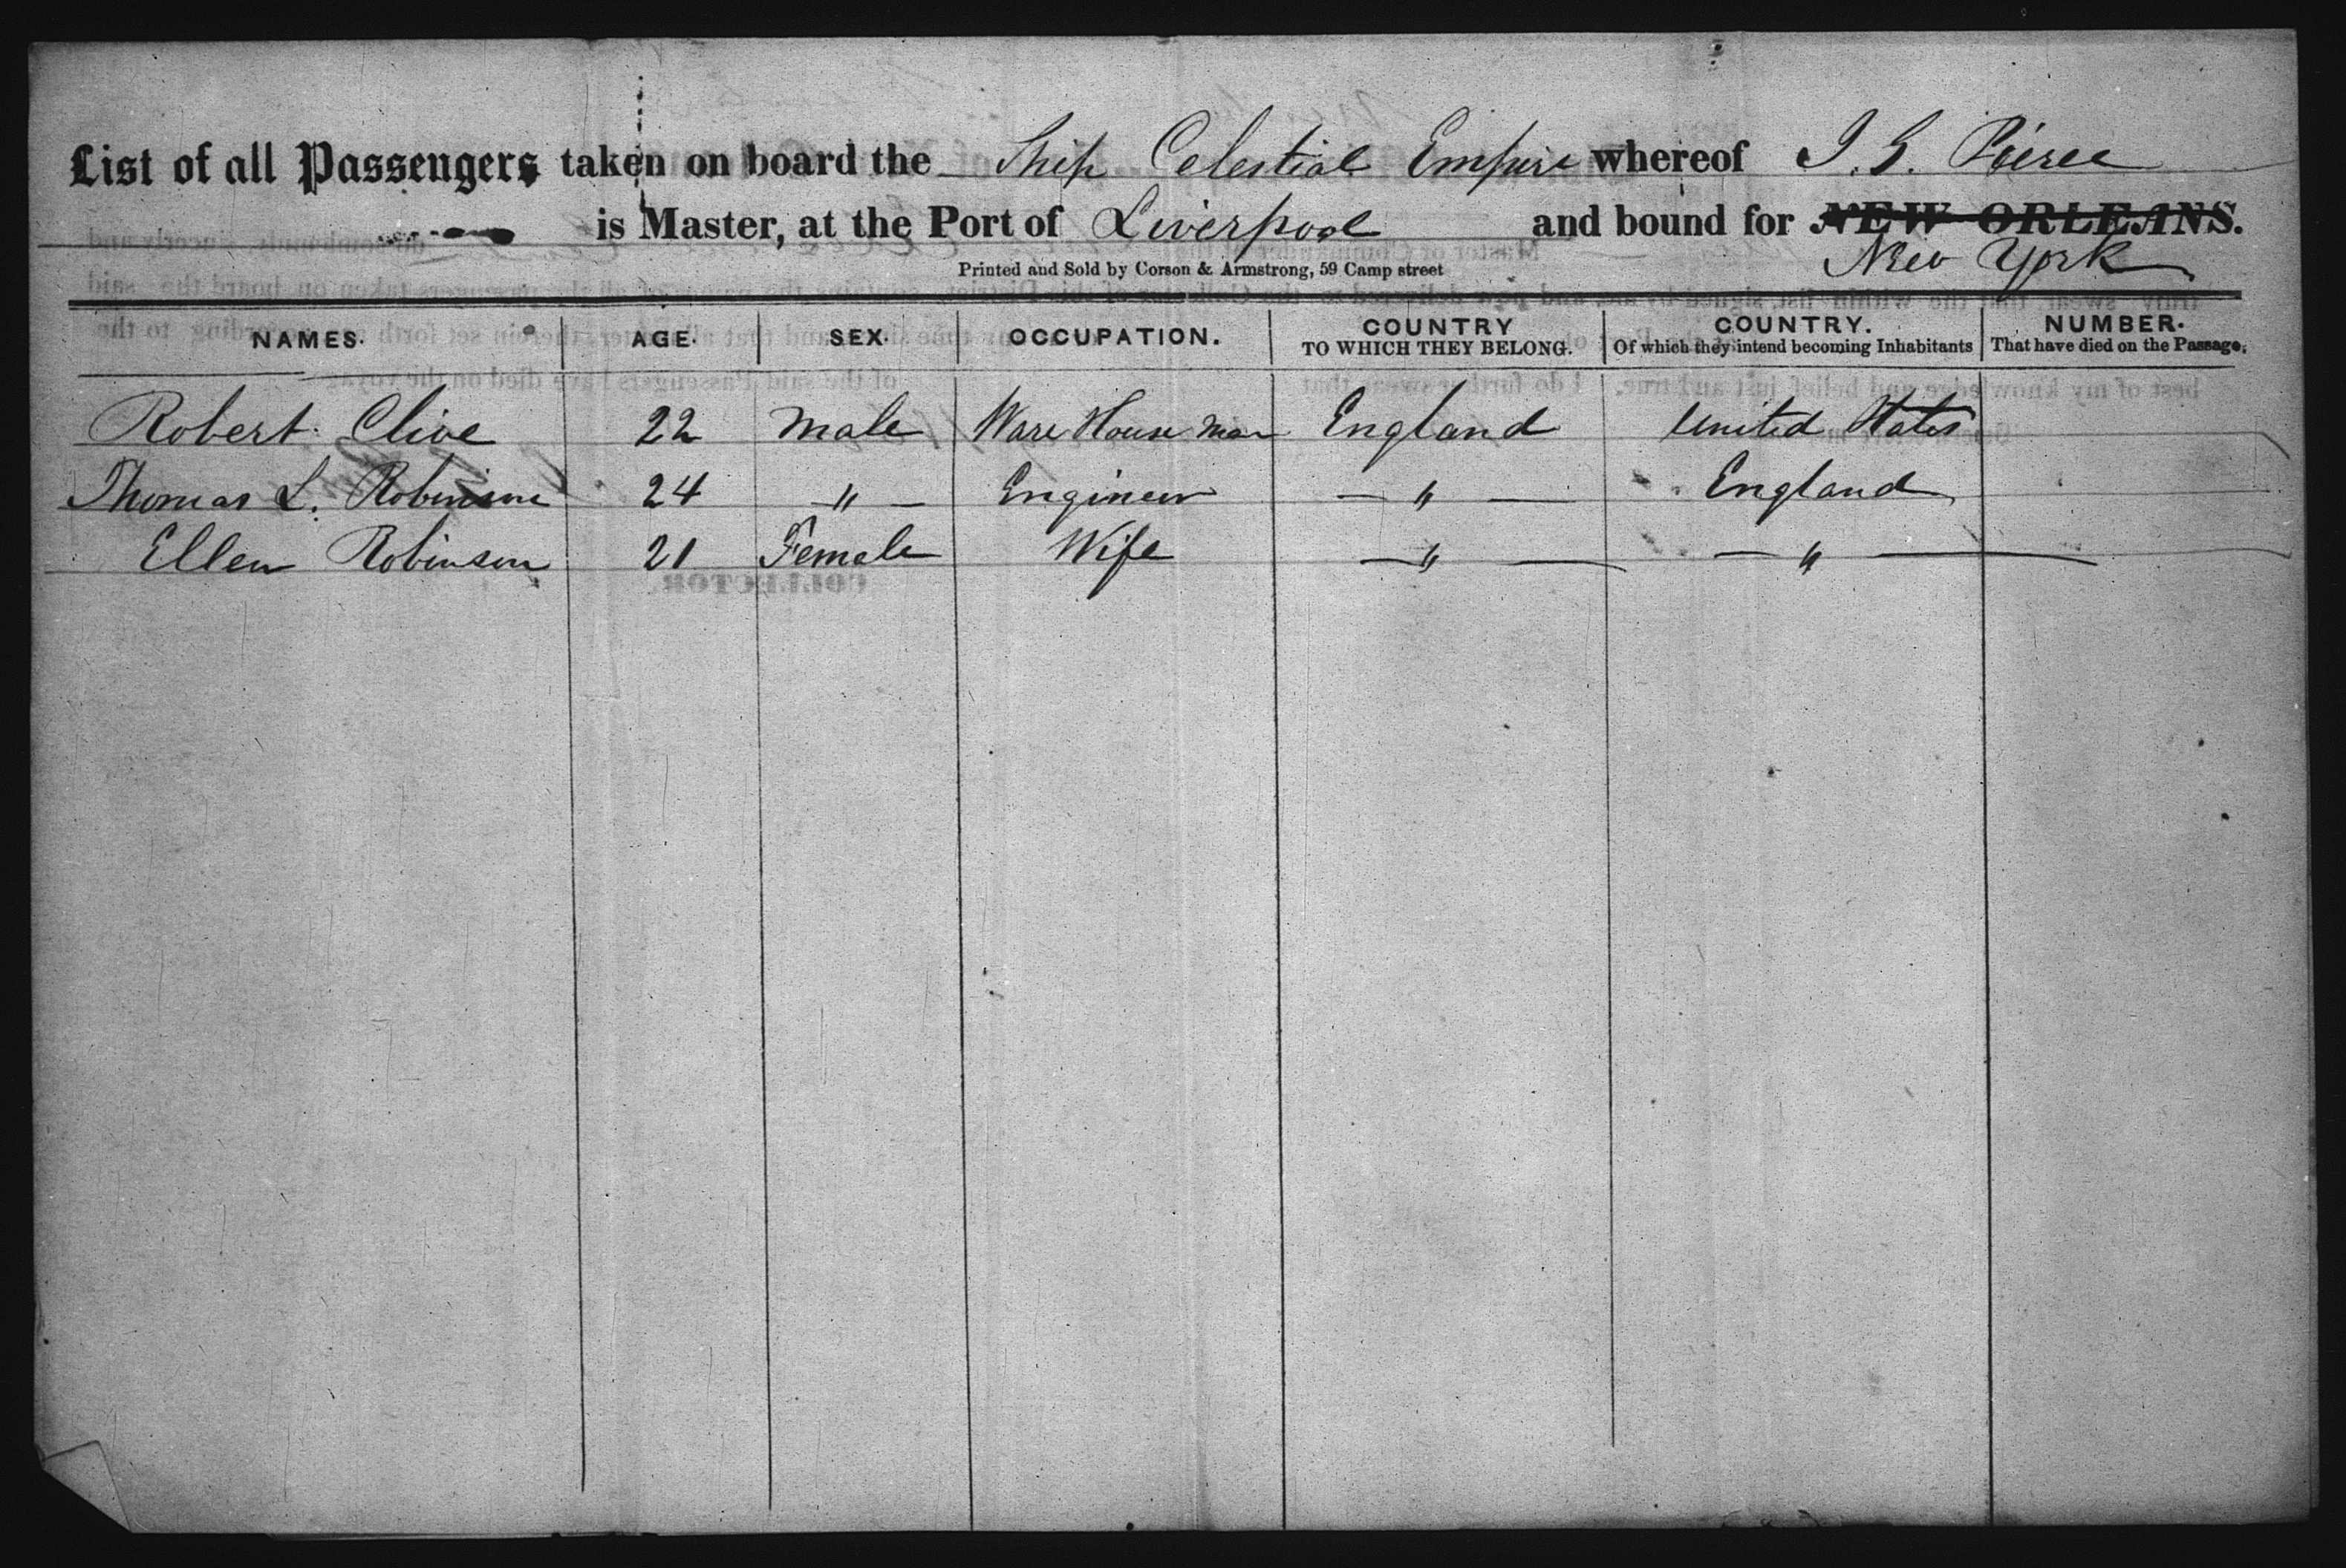 List of all Passengers taken on board the Ship Celestial Empire whereof J. S. Pierce
is Master, at the Port of Liverpool and bound for NEW ORLEANS.
New York
Printed and Sold by Corson & Armstrong, 59 Camp street
NAMES. AGE. SEX. OCCUPATION. COUNTRY TO WHICH THEY BELONG. COUNTRY. Of which they intend becoming Inhabitants NUMBER. That have died on the Passage.
Robert Clive 22 Male Ware House Man England United States
Thomas L. Robinson 24 — " — Engineer — " — England
Ellen Robinson 21 Female Wife — " — — " —
COLLECTOR.